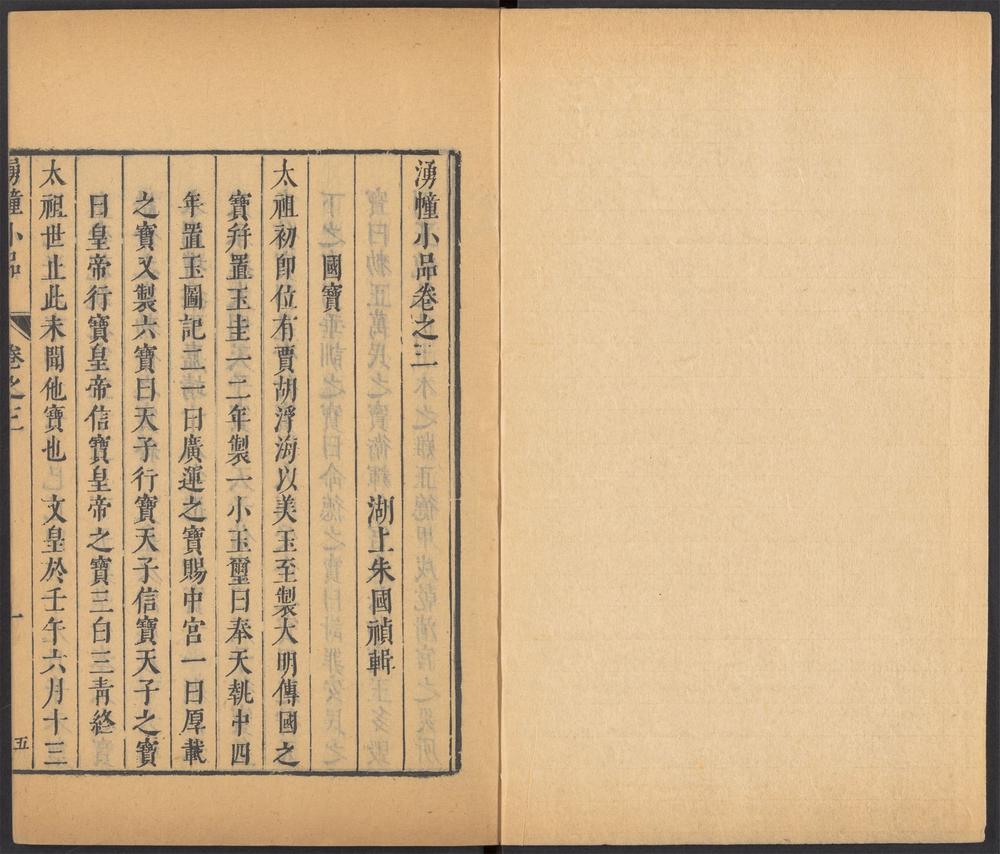 湧幢小品卷之三
湖上朱國禎輯
國寶
太祖初即位有賈胡浮海以美玉至製大明傳國之
寶并置玉圭一二年製一小玉璽曰奉天執中四
年置玉圖記二一曰廣運之寶賜中宮一曰厚載
之寶又製六寶曰天子行寶天子信寶天子之寶
曰皇帝行寶皇帝信寶皇帝之寶三白三青終
太祖世止此未聞他寶也 文皇於壬午六月十三
湧幢小品 卷之三 一 五